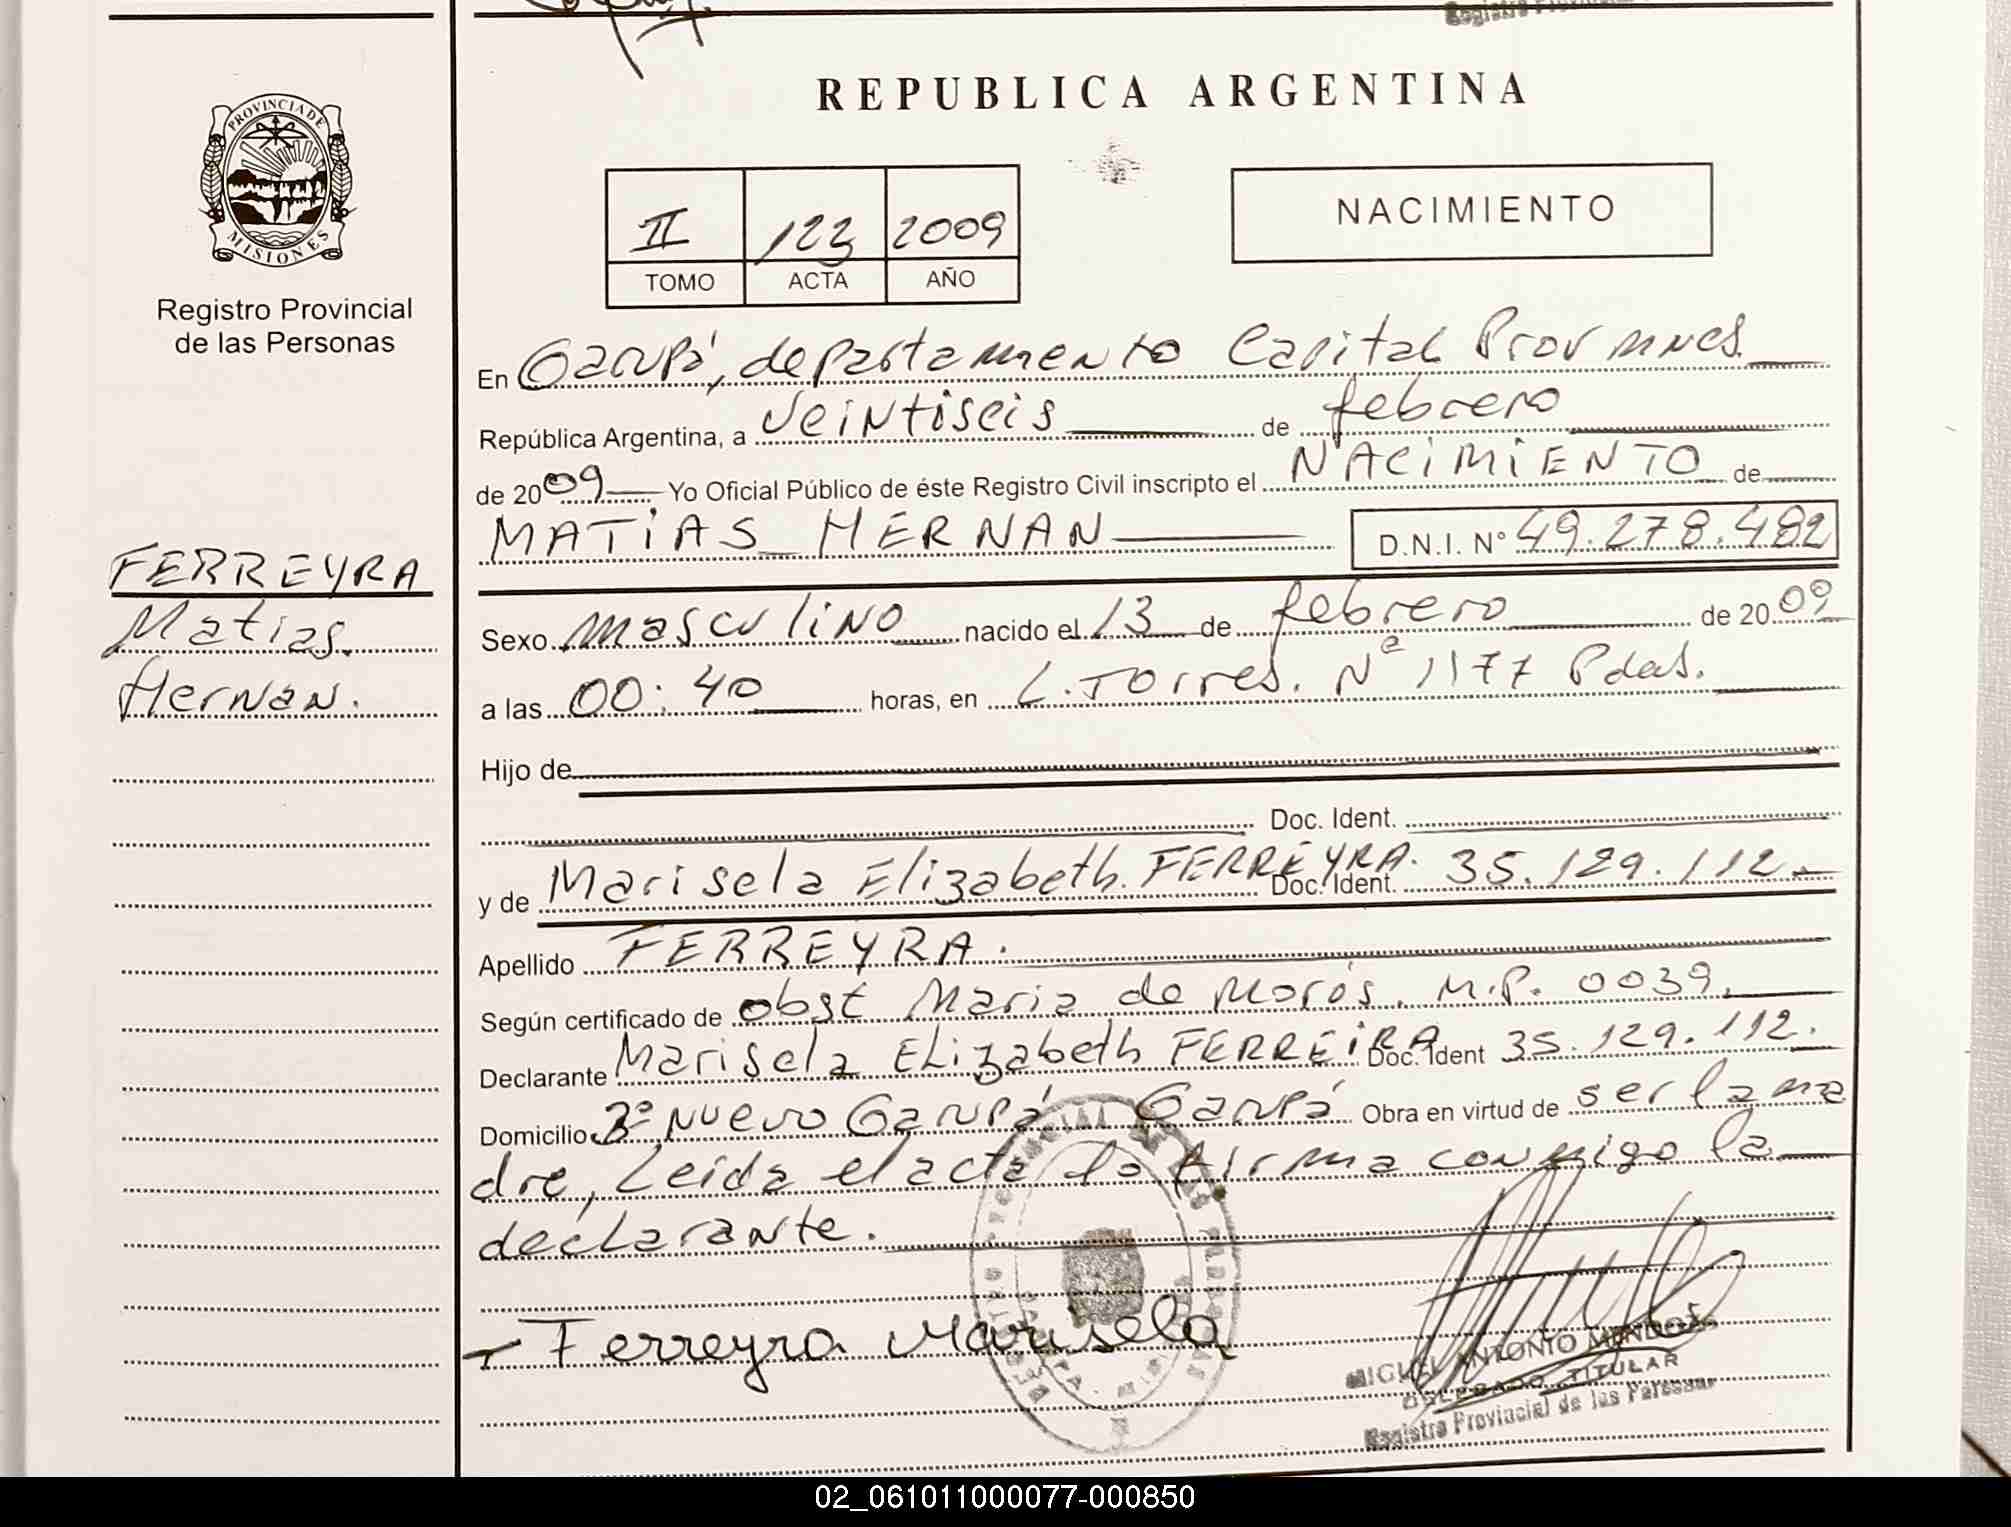 REPUBLICA ARGENTINA
PROVINCIA DE
MISIONES
Registro Provincial
de las Personas
II 123 2009
TOMO ACTA AÑO
NACIMIENTO
En Garupá, departamento Capital Prov Mnes.
República Argentina, a veintiseis de febrero
de 2009 Yo Oficial Público de éste Registro Civil inscripto el NACIMIENTO de
MATIAS HERNAN D.N.I. Nº 49.278.482
FERREYRA
Matias.
Hernan.
Sexo masculino nacido el 13 de febrero de 2009
a las 00:40 horas, en L. Torres. Nº 1177 Pdas.
Hijo de
Doc. Ident.
y de Marisela Elizabeth FERREYRA. Doc. Ident. 35.129.112.
Apellido FERREYRA.
Según certificado de obst Maria de Morós. M.P. 0039.
Declarante Marisela Elizabeth FERREIRA Doc. Ident 35.129.112.
Domicilio Bº Nuevo Garupá Garupá Obra en virtud de ser la ma
dre, Leida el acta la firma conmigo la
declarante.
Ferreyra Marisela
MIGUEL ANTONIO MENDOZA
DELEGADO TITULAR
Registro Provincial de las Personas
02_061011000077-000850